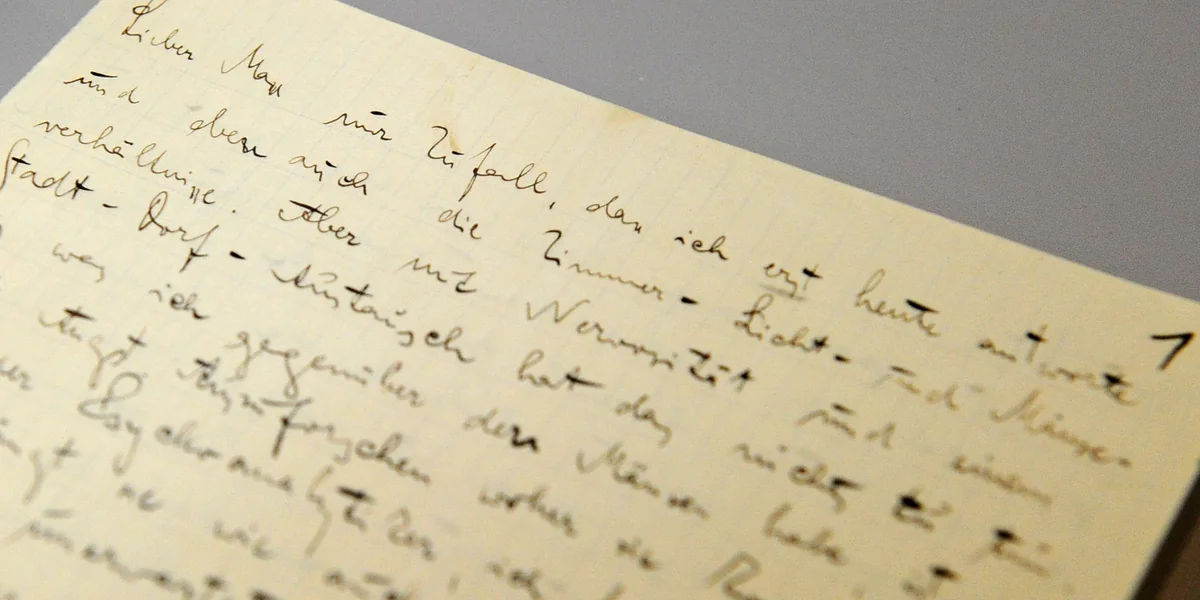 1
Lieber Max nur Zufall, dass ich erst heute antworte
und eben auch die Zimmer- Licht- und Mäuse-
verhältnisse. Aber mit Nervosität und einem
Stadt-Dorf-Austausch hat das nichts zu tun.
was ich gegenüber den Mäusen habe, ist
Angst. Auszuforschen woher sie
der Psychoanalytiker, ich
sie wie auch